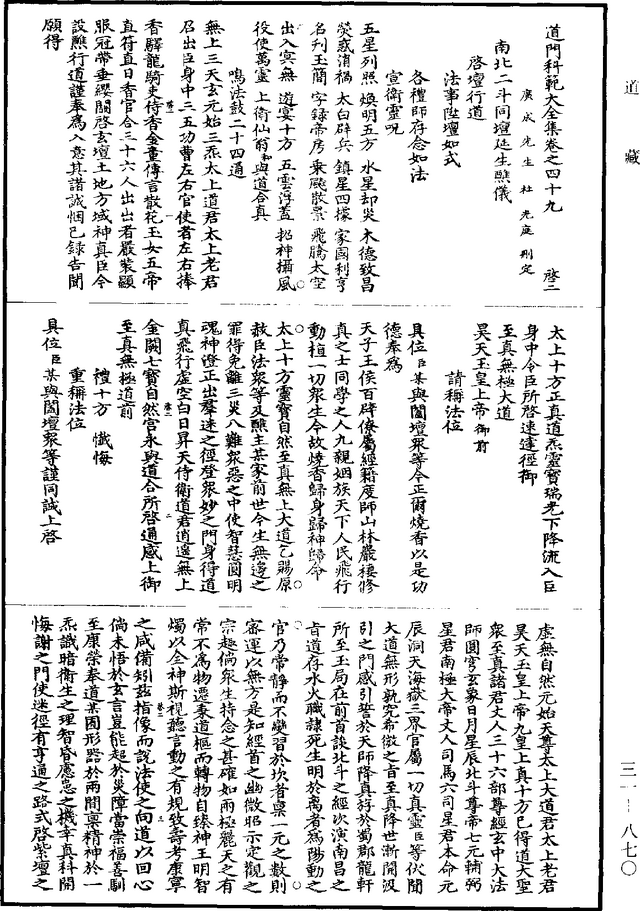 道藏
道門科範大全集卷之四十九　啓二
廣成先生杜光庭刪定
南北二斗同壇延生醮儀
啓壇行道
法事陞壇如式
各禮師存念如法
宣衛靈呪
五星列照　煥明五方　水星却災　木德致昌
熒惑消禍　太白辟兵　鎮星四據　家國利亨
名刊玉簡　字錄帝房　乘飈散景　飛騰太空
出入冥無　遊宴十方　五雲浮蓋　招神攝風
役使萬靈　上衛仙翁　與道合真
鳴法鼓二十四通
無上三天玄元始三炁太上道君太上老君
召出臣身中三五功曹左右官使者左右捧
香驛龍騎吏侍香金童傳言散花玉女五帝
直符直日香官合三十六人出出者嚴裝顯
服冠帶垂纓關啓玄壇土地方域神真臣今
設醮行道謹奉為入意其諸誠悃已錄告聞
願得
太上十方正真道炁靈寶瑞光下降流入臣
身中令臣所啓速達徑御
至真無極大道
昊天玉皇上帝御前
請稱法位
具位臣某與闔壇眾等今正爾燒香以是功
德奉為
天子王侯百辟僚屬經籍度師山林嚴棲修
真之士同學之人九親姻族天下人民飛行
動植一切眾生今故燒香歸身歸神歸命
太上十方靈寶自然至真無上大道乞賜原
赦臣法眾等及醮主某家前世今生無邊之
罪得免離三災八難眾惡之中使智慧圓明
魂神澄正出羣迷之徑登眾妙之門身得道
真飛行虛空白日昇天侍衛道君逍遙無上
金闕七寶自然宮永與道合所啓通感上御
至真無極道前
禮十方　懺悔
重稱法位
具位臣某與闔壇眾等謹同誠上啓
虛無自然元始天尊太上大道君太上老君
昊天玉皇上帝九皇上真十方已得道大聖
眾至真諸君丈人三十六部尊經玄中大法
師圓穹玄象日月星辰北斗尊帝七元輔弼
星君南極大帝丈人司馬六司星君本命元
辰洞天海嶽三界官屬一切真靈臣等伏聞
大道無形孰究希微之旨至真降世漸開汲
引之門感引誓於天師降真斿於蜀郡龍軒
所至玉局在前首談北斗之經次演南昌之
旨道存水火職隸死生明於离者為陽動之
官乃常靜而不變習於坎者稟一元之數則
審運以無方是知經首之幽微昭示定觀之
宗趣倘眾生持念之甚確如兩極麗天之有
常不為物遷奉道樞而轉物自臻神王明智
燭以全神斯視聽言動之有規致壽考康寧
之咸備矧茲指像而說法使之向道以回心
倘未悟於玄言豈能超於災障當崇福善馴
至康榮奉道某圓形器於兩間稟精神於一
炁識暗衛生之理智昏慮患之機幸真科開
悔謝之門使迷徑有亨通之路式啓紫壇之
三一—八七〇